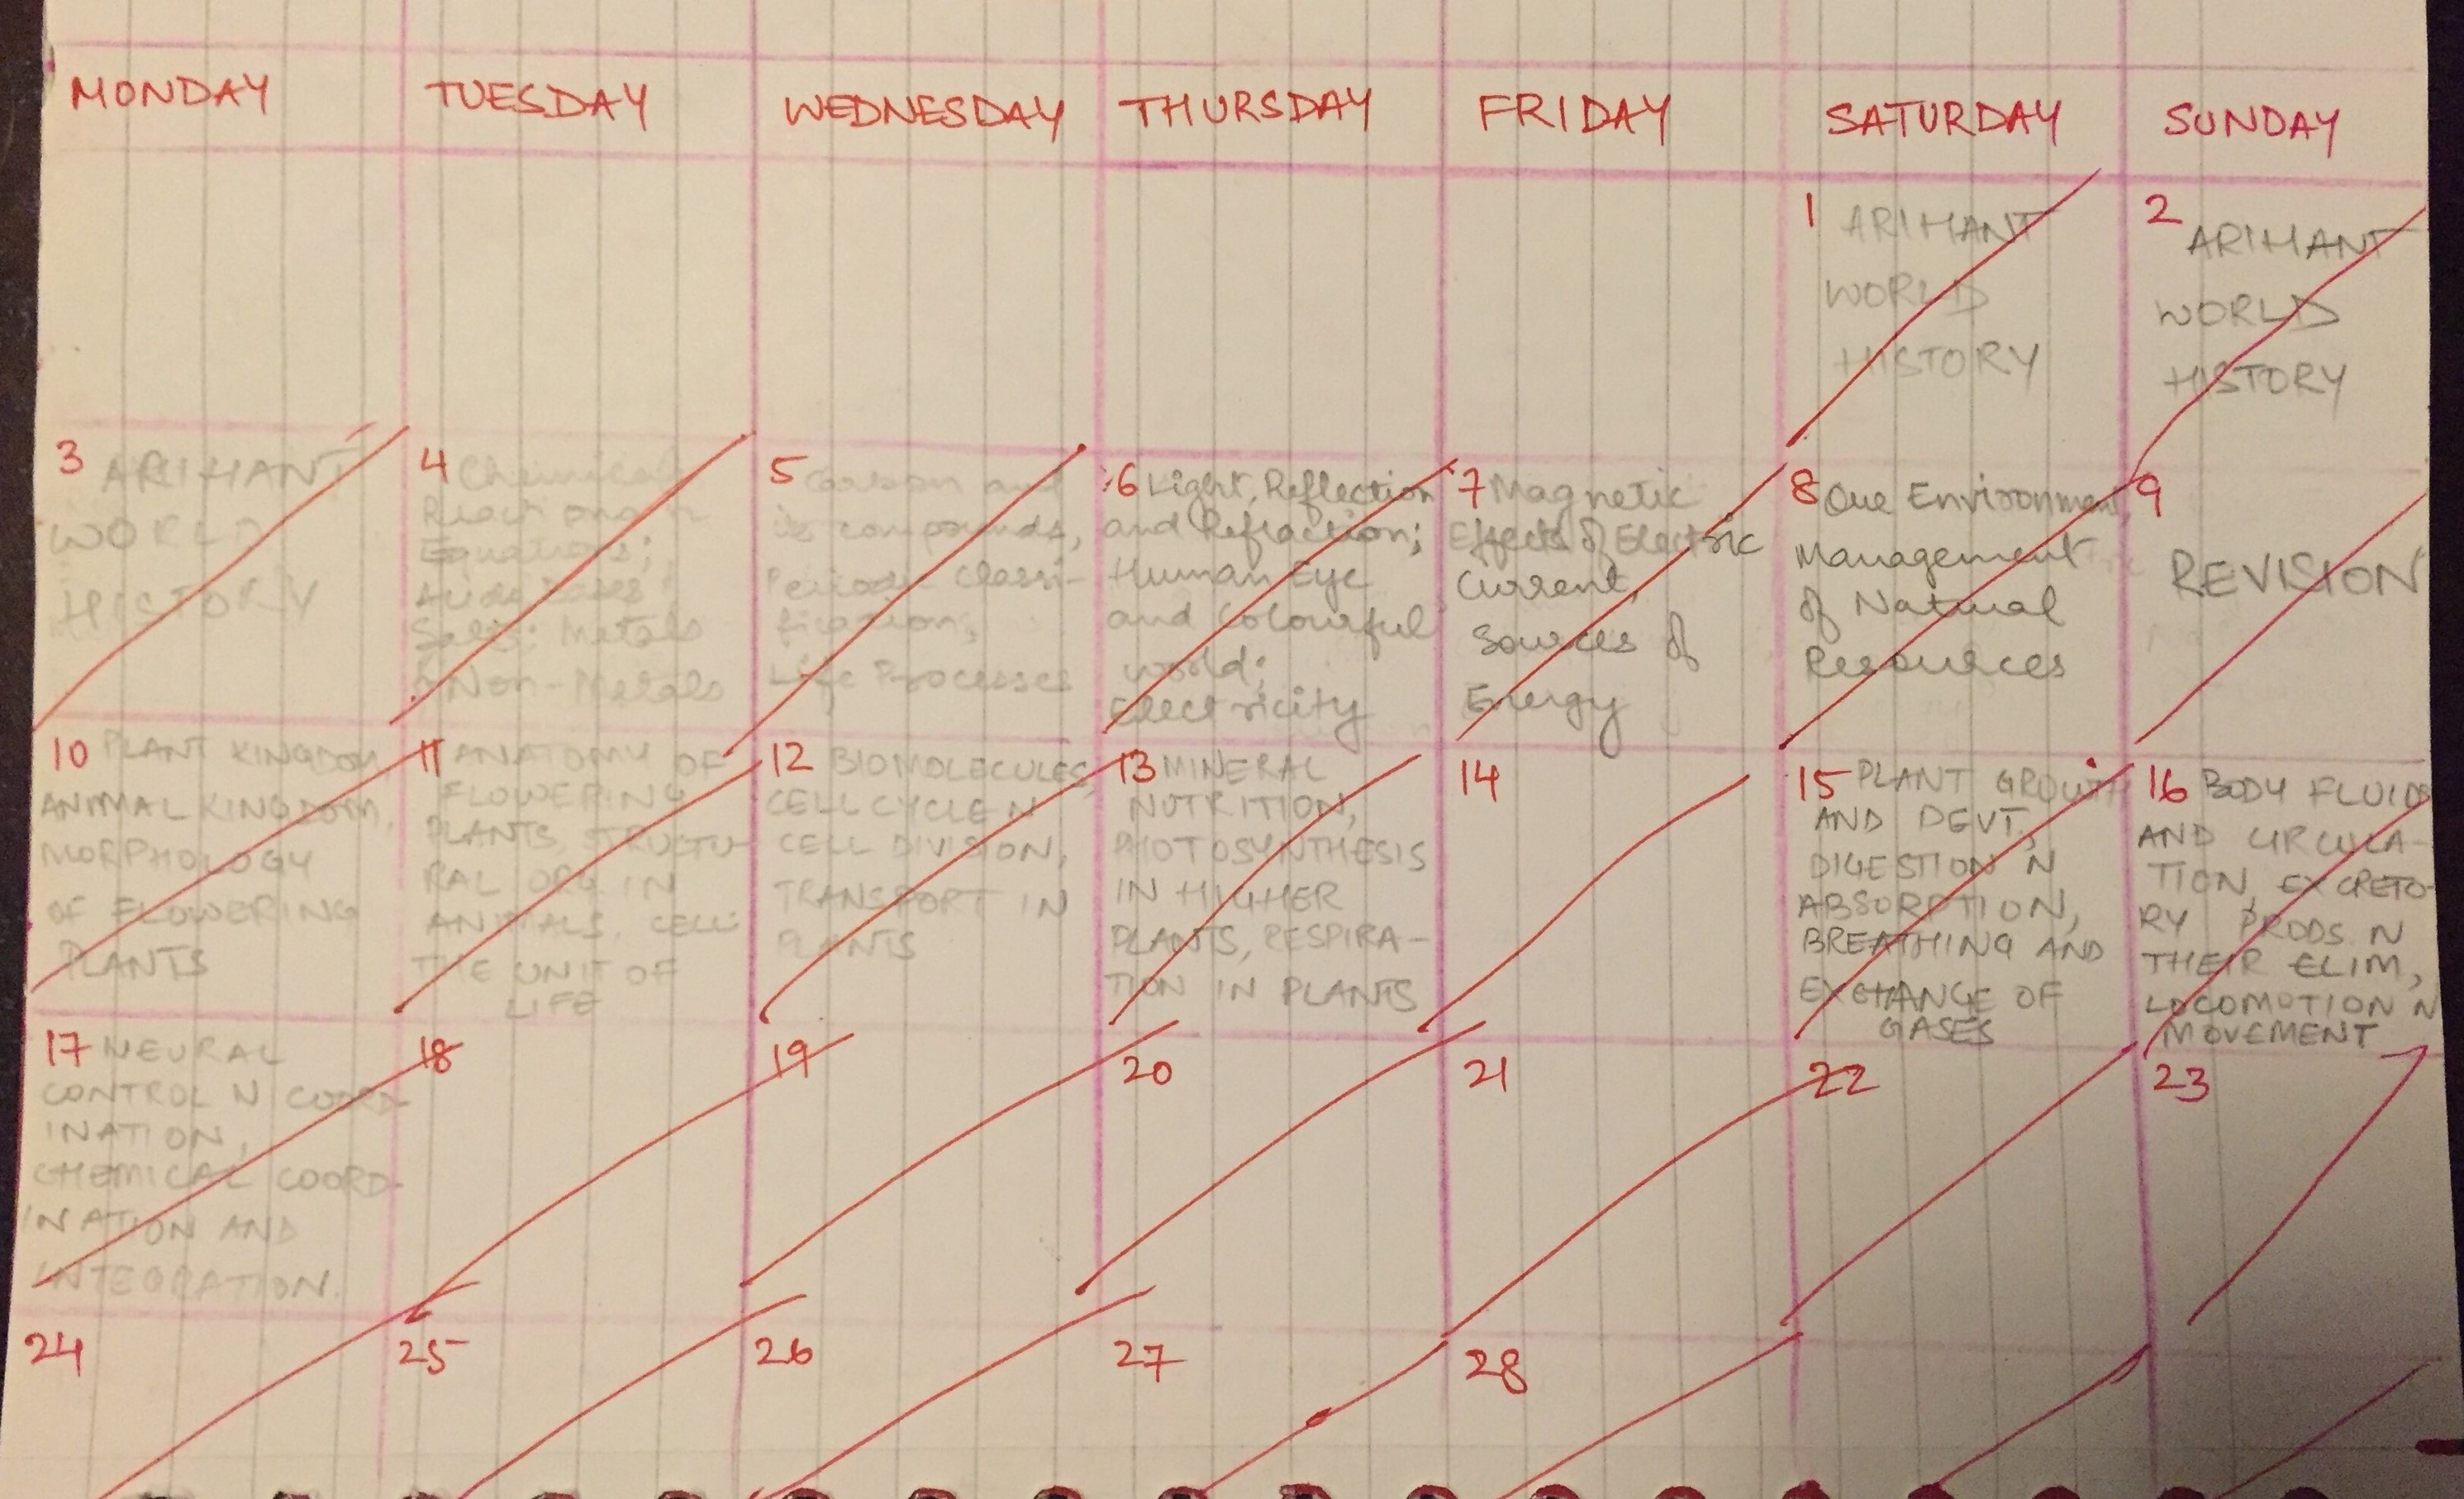 MONDAY TUESDAY WEDNESDAY THURSDAY FRIDAY SATURDAY SUNDAY
1 ARIHANT
WORLD
HISTORY
2 ARIHANT
WORLD
HISTORY
3 ARIHANT
WORLD
HISTORY
4 Chemical
Reactions n
Equations;
Acids Bases
Salts; Metals
n Non-Metals
5 Carbon and
its compounds,
Periodic Classi-
fication,
Life Processes
6 Light, Reflection
and Refraction;
Human Eye
and Colourful
world;
Electricity
7 Magnetic
Effects of Electric
Current,
Sources of
Energy
8 Our Environment,
Management
of Natural
Resources
9
REVISION
10 PLANT KINGDOM,
ANIMAL KINGDOM,
MORPHOLOGY
OF FLOWERING
PLANTS
11 ANATOMY OF
FLOWERING
PLANTS, STRUCTU-
RAL ORG. IN
ANIMALS, CELL:
THE UNIT OF
LIFE
12 BIOMOLECULES,
CELL CYCLE N
CELL DIVISION,
TRANSPORT IN
PLANTS
13 MINERAL
NUTRITION,
PHOTOSYNTHESIS
IN HIGHER
PLANTS, RESPIRA-
TION IN PLANTS
14
15 PLANT GROWTH
AND DEVT,
DIGESTION N
ABSORPTION,
BREATHING AND
EXCHANGE OF
GASES
16 BODY FLUIDS
AND CIRCULA-
TION, EXCRETO-
RY PRODS. N
THEIR ELIM,
LOCOMOTION N
MOVEMENT
17 NEURAL
CONTROL N COORD-
INATION,
CHEMICAL COORD-
INATION AND
INTEGRATION.
18
19
20
21
22
23
24
25
26
27
28